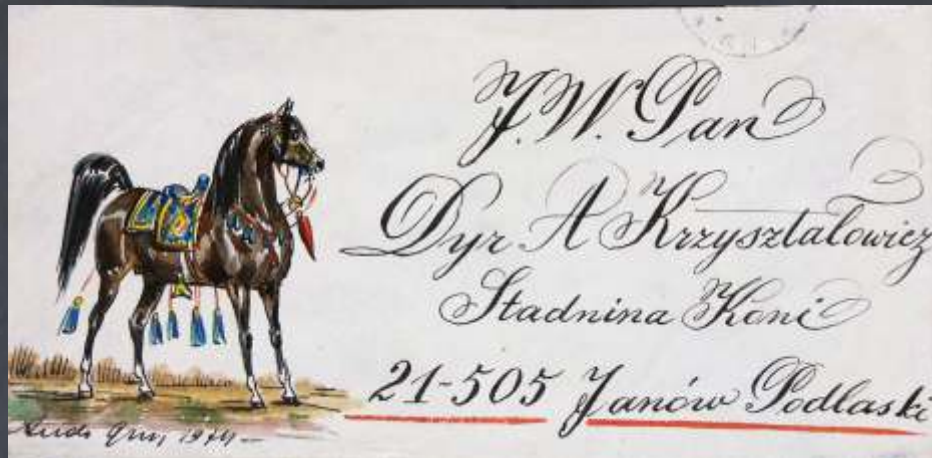 J.W. Pan
Dyr A Krzyształowicz
Stadnina Koni
21-505 Janów Podlaski